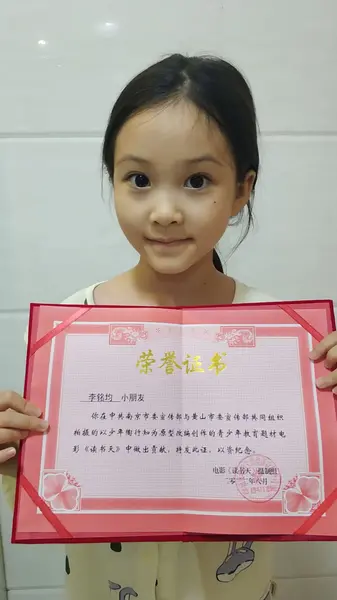 荣誉证书
李铭均 小朋友
你在中共南京市委宣传部与黄山市委宣传部共同组织
拍摄的以少年陶行知为原型改编创作的青少年教育题材电
影《读书天》中做出贡献，特发此证，以资纪念。
电影《读书天》摄制组